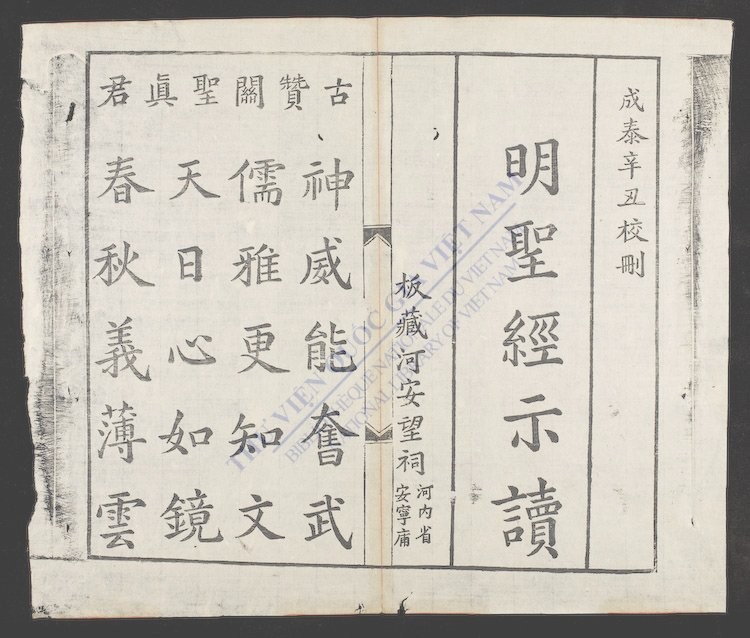 成泰辛丑校刪
明聖經示讀
板藏河安望祠
河内省
安寧庸
古贊關聖眞君
神威能奮武
儒雅更知文
天日心如鏡
春秋義薄雲
THƯ VIỆN QUỐC GIA VIỆT NAM
BIBLIOTHÈQUE NATIONALE DU VIETNAM
NATIONAL LIBRARY OF VIETNAM